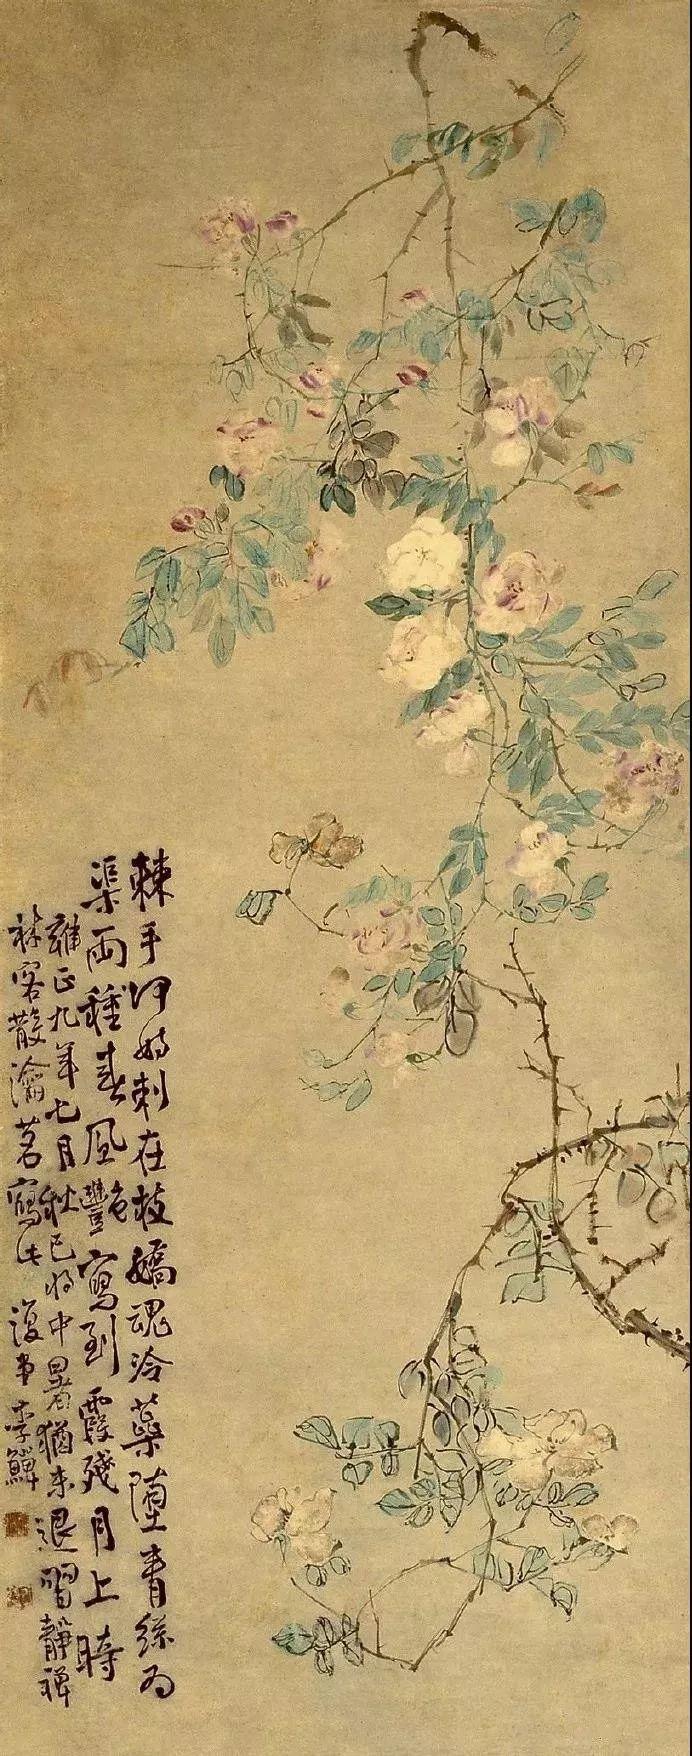 棘手何妨刺在枝嬌魂冷蘂墮青絲為
渠兩種春風艷寫到霞殘月上時
雍正九年七月秋已將中暑猶未退習靜禪
林客散瀹茗寫此復堂李鱓